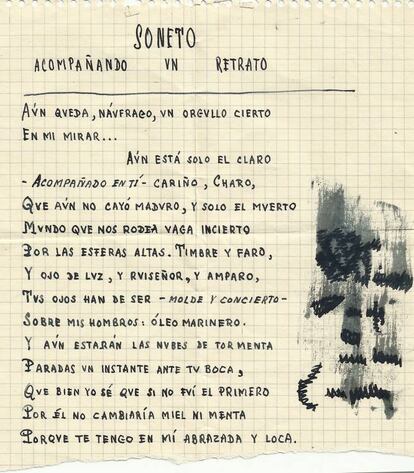 SONETO
ACOMPAÑANDO UN RETRATO
AÚN QUEDA, NÁUFRAGO, UN ORGULLO CIERTO
EN MI MIRAR...
AÚN ESTÁ SOLO EL CLARO
- ACOMPAÑADO EN TÍ - CARIÑO, CHARO,
QUE AÚN NO CAYÓ MADURO, Y SOLO EL MUERTO
MUNDO QUE NOS RODEA VAGA INCIERTO
POR LAS ESFERAS ALTAS. TIMBRE Y FARO,
Y OJO DE LUZ, Y RUISEÑOR, Y AMPARO,
TUS OJOS HAN DE SER - MOLDE Y CONCIERTO -
SOBRE MIS HOMBROS: ÓLEO MARINERO.
Y AÚN ESTARÁN LAS NUBES DE TORMENTA
PARADAS UN INSTANTE ANTE TU BOCA,
QUE BIEN YO SÉ QUE SI NO FUÍ EL PRIMERO
POR ÉL NO CAMBIARÍA MIEL NI MENTA
PORQUE TE TENGO EN MÍ ABRAZADA Y LOCA.